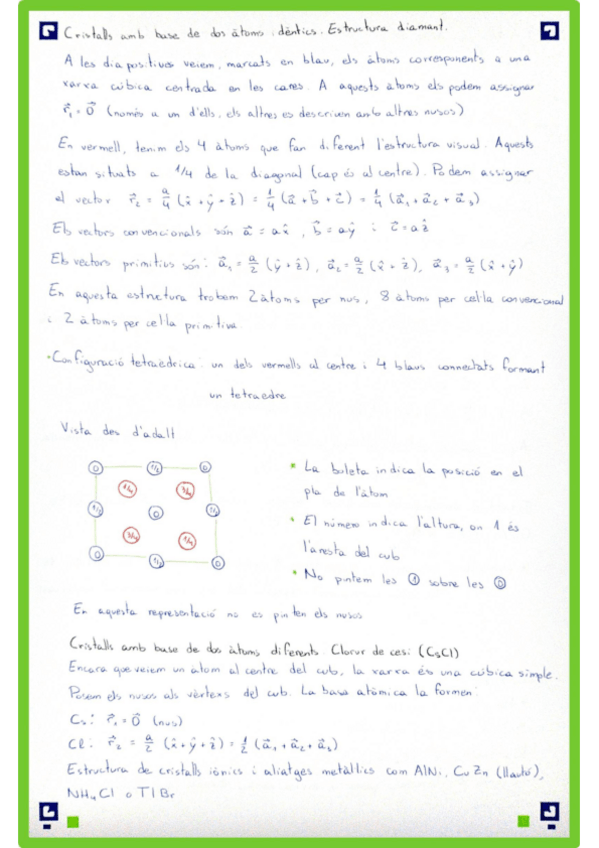 Cristalls amb base de dos àtoms idèntics. Estructura diamant.
A les diapositives veiem, marcats en blau, els àtoms corresponents a una
xarxa cúbica centrada en les cares. A aquests àtoms els podem assignar
r⃗₁ = 0⃗ (només a un d'ells, els altres es descriuen amb altres nusos)
En vermell, tenim els 4 àtoms que fan diferent l'estructura visual. Aquests
estan situats a 1/4 de la diagonal (cap és al centre). Podem assignar
el vector r⃗₂ = a/4 (x̂ + ŷ + ẑ) = 1/4 (a⃗ + b⃗ + c⃗) = 1/4 (a⃗₁ + a⃗₂ + a⃗₃)
Els vectors convencionals són a⃗ = ax̂, b⃗ = aŷ i c⃗ = aẑ
Els vectors primitius són: a⃗₁ = a/2 (ŷ + ẑ), a⃗₂ = a/2 (x̂ + ẑ), a⃗₃ = a/2 (x̂ + ŷ)
En aquesta estructura trobem 2 àtoms per nus, 8 àtoms per cel·la convencional
i 2 àtoms per cel·la primitiva.
• Configuració tetraèdrica: un dels vermells al centre i 4 blaus connectats formant
un tetraedre
Vista des d'adalt
0 1/2 0
1/4 3/4
1/2 0 1/2
3/4 1/4
0 1/2 0
• La boleta indica la posició en el
pla de l'àtom
• El número indica l'altura, on 1 és
l'aresta del cub
• No pintem les 1 sobre les 0
En aquesta representació no es pinten els nusos
Cristalls amb base de dos àtoms diferents. Clorur de cesi (CsCl)
Encara que veiem un àtom al centre del cub, la xarxa és una cúbica simple.
Posem els nusos als vèrtexs del cub. La base atòmica la formen:
Cs: r⃗₁ = 0⃗ (nus)
Cl: r⃗₂ = a/2 (x̂ + ŷ + ẑ) = 1/2 (a⃗₁ + a⃗₂ + a⃗₃)
Estructura de cristalls iònics i aliatges metàl·lics com AlNi, CuZn (llautó),
NH₄Cl o TlBr